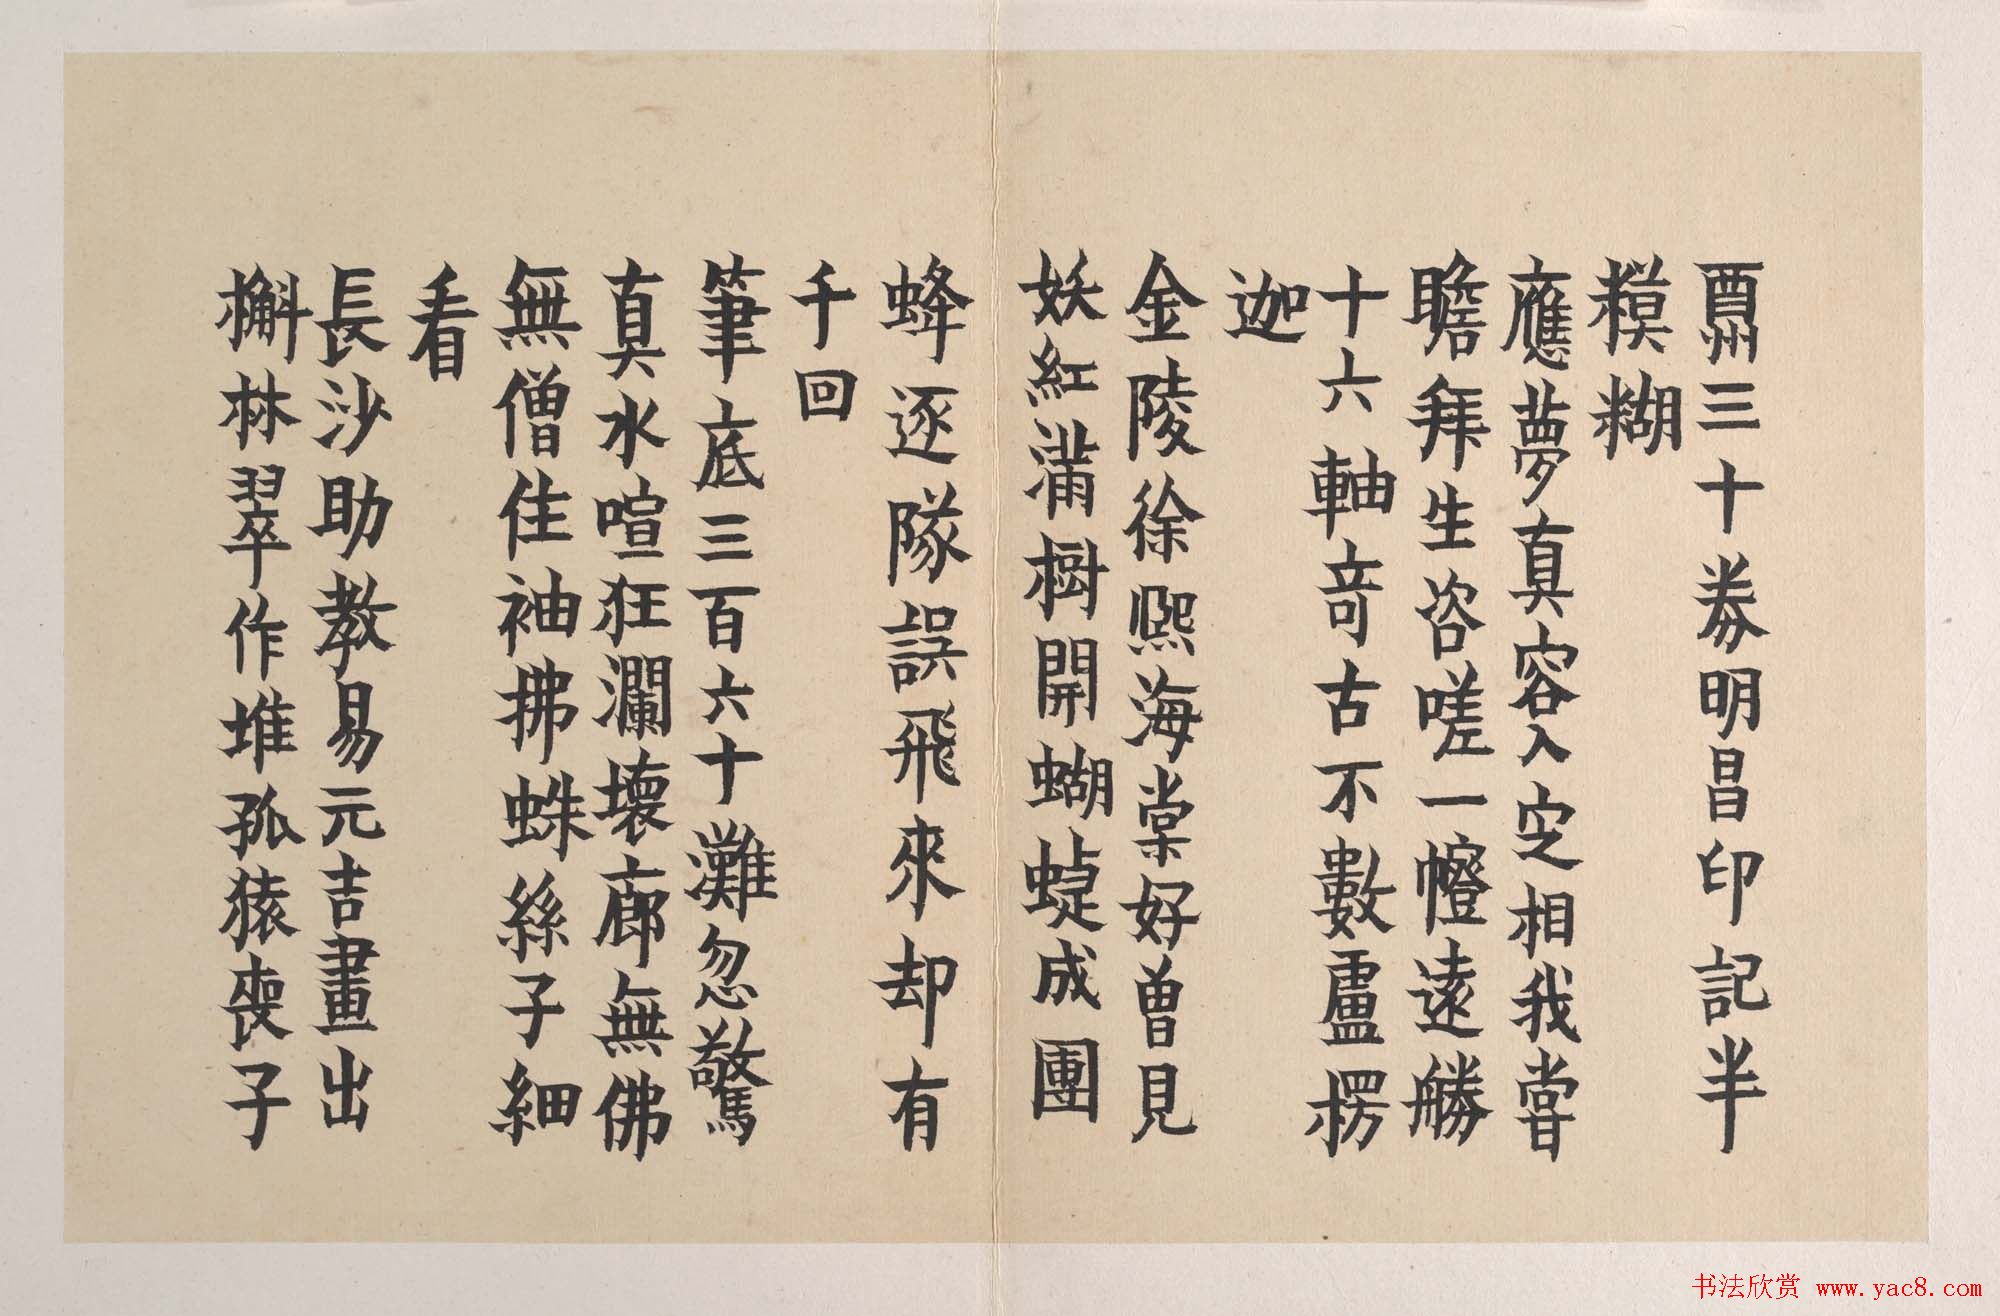 酉州三十券明昌印記半
糢糊
應夢真容入定相我嘗
瞻拜生咨嗟一幢遠勝
十六軸奇古不數盧楞
迦
金陵徐熙海棠好曾見
妖紅滿樹開蝴蜨成團
蜂逐隊誤飛來却有
千回
筆底三百六十灘忽驚
真水喧狂瀾壞廊無佛
無僧住袖拂蛛絲子細
看
長沙助教易元吉畫出
槲林翠作堆孤猿喪子
书法欣赏 www.yac8.com